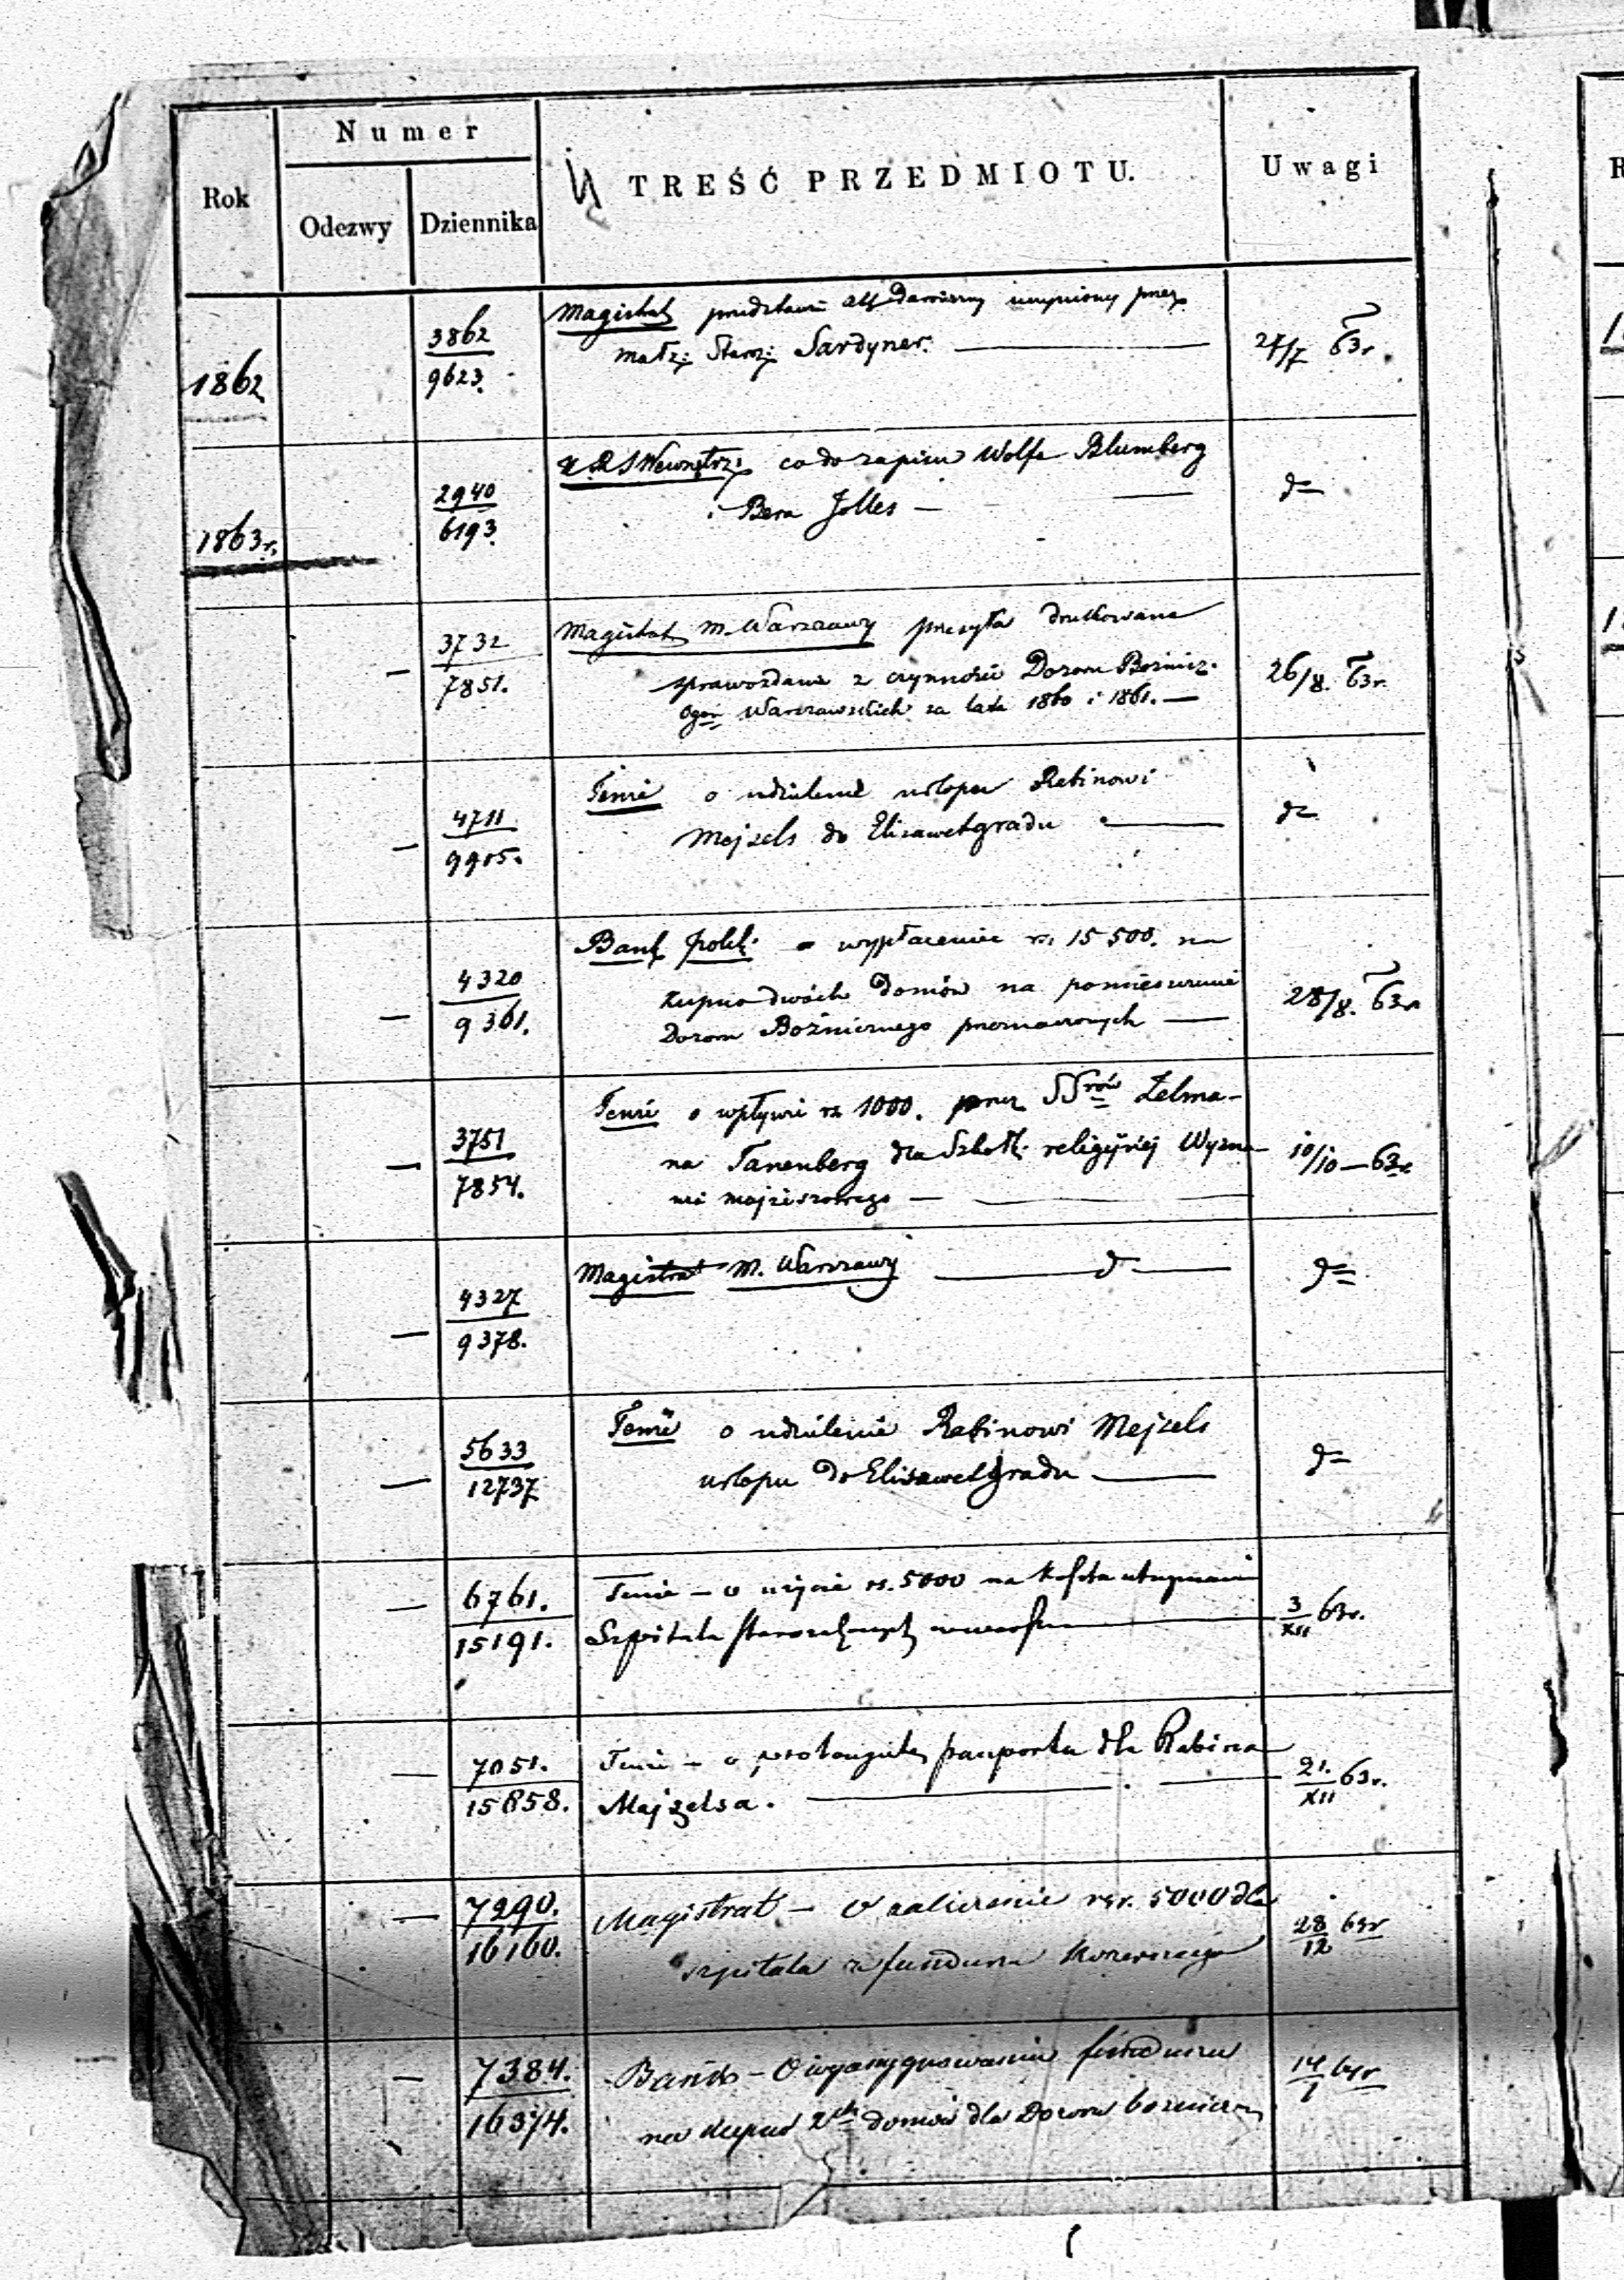 Numer
Rok
Odezwy
Dziennika
TREŚĆ PRZEDMIOTU.
Uwagi
1862
3862
9623.
Magistrat przedstawi akt Darowizny uczyniony przez
małż: Staroz: Sardyner.
27/7 63r.
1863r.
2940
6193.
co do zapisu Wolfa Blumberg
i Bera Jolles —
d=
—
3732
7851.
Magistrat m. Warszawy przesyła drukowane
sprawozdanie z czynności Dozoru Boźnicz.
Warszawskich za lata 1860 i 1861. —
26/8. 63r.
—
4711
9905.
Tenże o udzielenie urlopu Rabinowi
Mejzels do Elisawetgradu
d=
—
4320
9361.
Bank polsk. o wypłacenie rs. 15 500. na
kupno dwóch Domów na pomieszczenie
Dozoru Boźniczego przeznaczonych —
28/8. 63r.
—
3751
7854.
Tenże o wpływie rs. 1000. przez SSrów Zelma-
na Tanenberg dla Szkoły religijnej Wyzna-
nia mojżeszowego —
10/10 — 63r.
—
4327
9378.
Magistrat m. Warszawy — d —
d=
—
5633
12737
Tenże o udzielenie Rabinowi Mejzels
urlopu do Elisawetgradu —
d=
—
6761.
15191.
Tenże — o użycie rs. 5000 na koszta utrzymania
Szpitala starozakonnych
3/XII 63r.
—
7051.
15858.
Tenże — o paszportu dla Rabina
Majzelsa.
21./XII 63r.
—
7290.
16160.
Magistrat — O zaliczenie rsr. 5000 dla
szpitala z funduszu Koszernego
28/12 63r
—
7384.
16374.
Bank — O wyasygnowanie funduszu
na kupno 2ch domów dla Dozoru bożnicz
14/1 64r